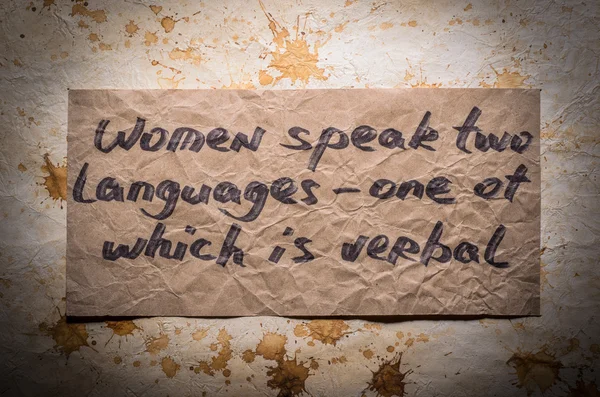 Women speak two
Languages - one of
which is verbal